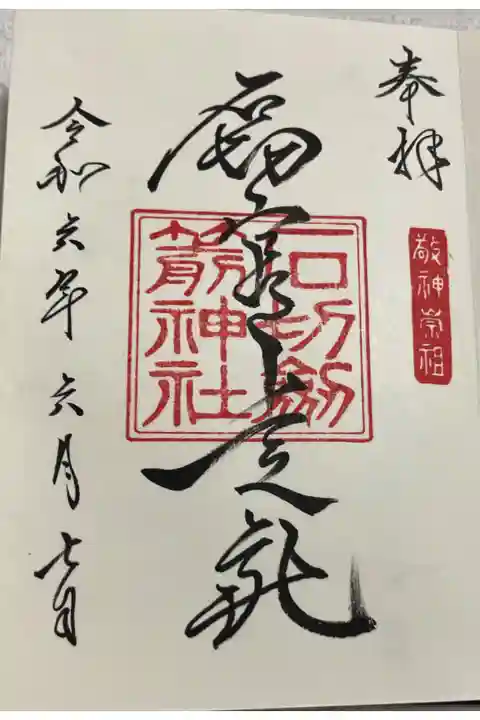 奉拝
敬神崇祖
石切劔
箭神社
令和六年六月七日